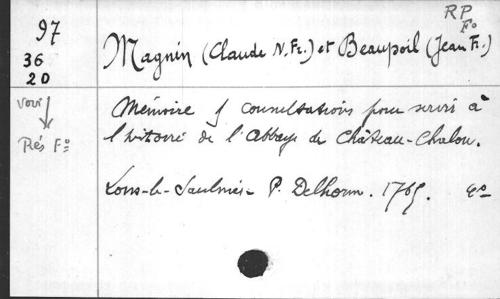 RP
F°
97
36
20
Magnin (Claude N. Fr.) et Beaupoil (Jean Fr.)
voir
Rés F°
Mémoire & consultations pour servir à
l'histoire de l'Abbaye de Château-Chalon.
Lons-le-Saulnier - P. Delhorm. 1765. 4°